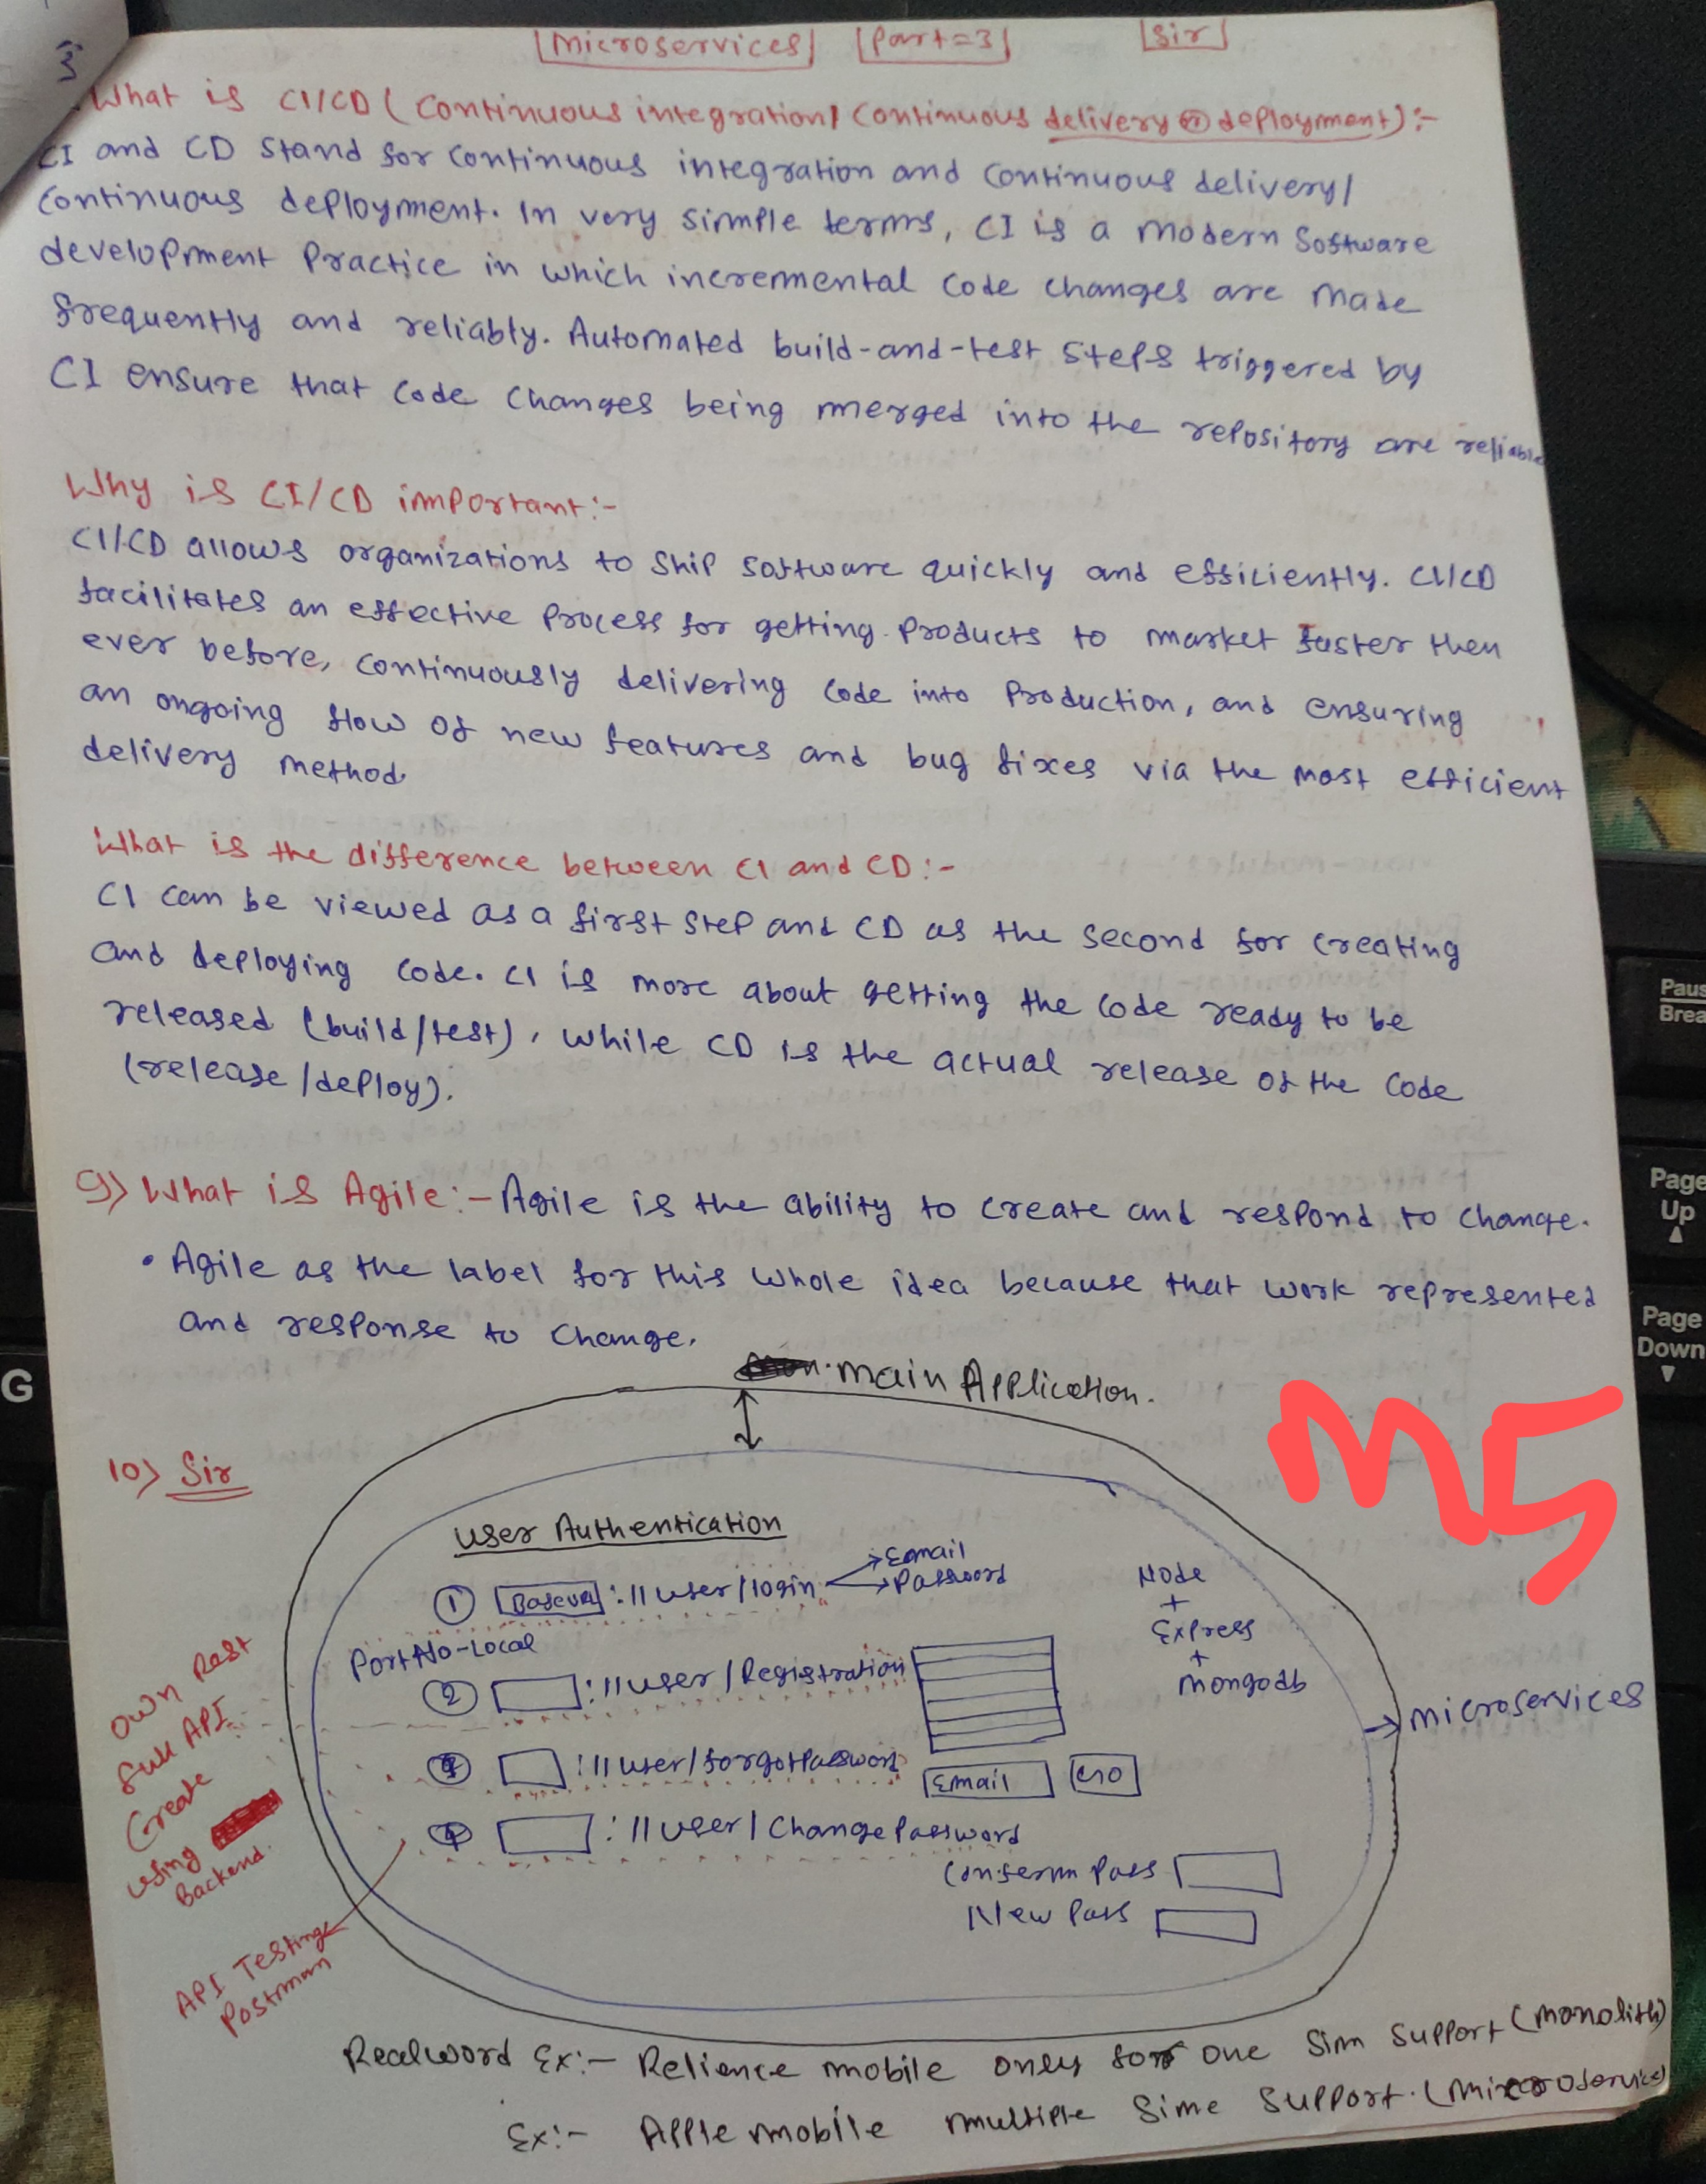 3
Microservices Part=3 Sir
What is CI/CD (Continuous integration/ Continuous delivery or deployment):-
CI and CD Stand for Continuous integration and Continuous delivery/
Continuous deployment. In very simple terms, CI is a modern Software
development Practice in which incremental Code changes are made
frequently and reliably. Automated build-and-test Steps triggered by
CI ensure that Code Changes being merged into the repository are reliable
Why is CI/CD important:-
CI/CD allows organizations to Ship Software quickly and efficiently. CI/CD
facilitates an effective Process for getting Products to market faster then
ever before, Continuously delivering Code into Production, and ensuring
an ongoing flow of new features and bug fixes via the most efficient
delivery method
What is the difference between CI and CD:-
CI can be viewed as a first Step and CD as the Second for Creating
and deploying Code. CI is more about getting the Code ready to be
released (build/test), While CD is the actual release of the Code
(release/deploy).
9) What is Agile:- Agile is the ability to Create and respond to Change.
• Agile as the label for this whole idea because that work represented
and response to Change.
main Application.
10) Sir
User Authentication
① Baseurl ://user/login Email
Password
Node
+
Express
+
Mongodb
Port No-Local
② ://user/Registration
://user/forgotPassword
Email GO
://user/ChangePassword
Conferm Pass
New Pass
microservices
Own Rest
full API
Create
Using
Backend.
API Testing
Postman
M5
Realword Ex:- Relience mobile only for one Sim Support (Monolith)
Ex:- Apple mobile multiple Sime Support. (Microservice)
Paus
Brea
Page
Up
Page
Down
G